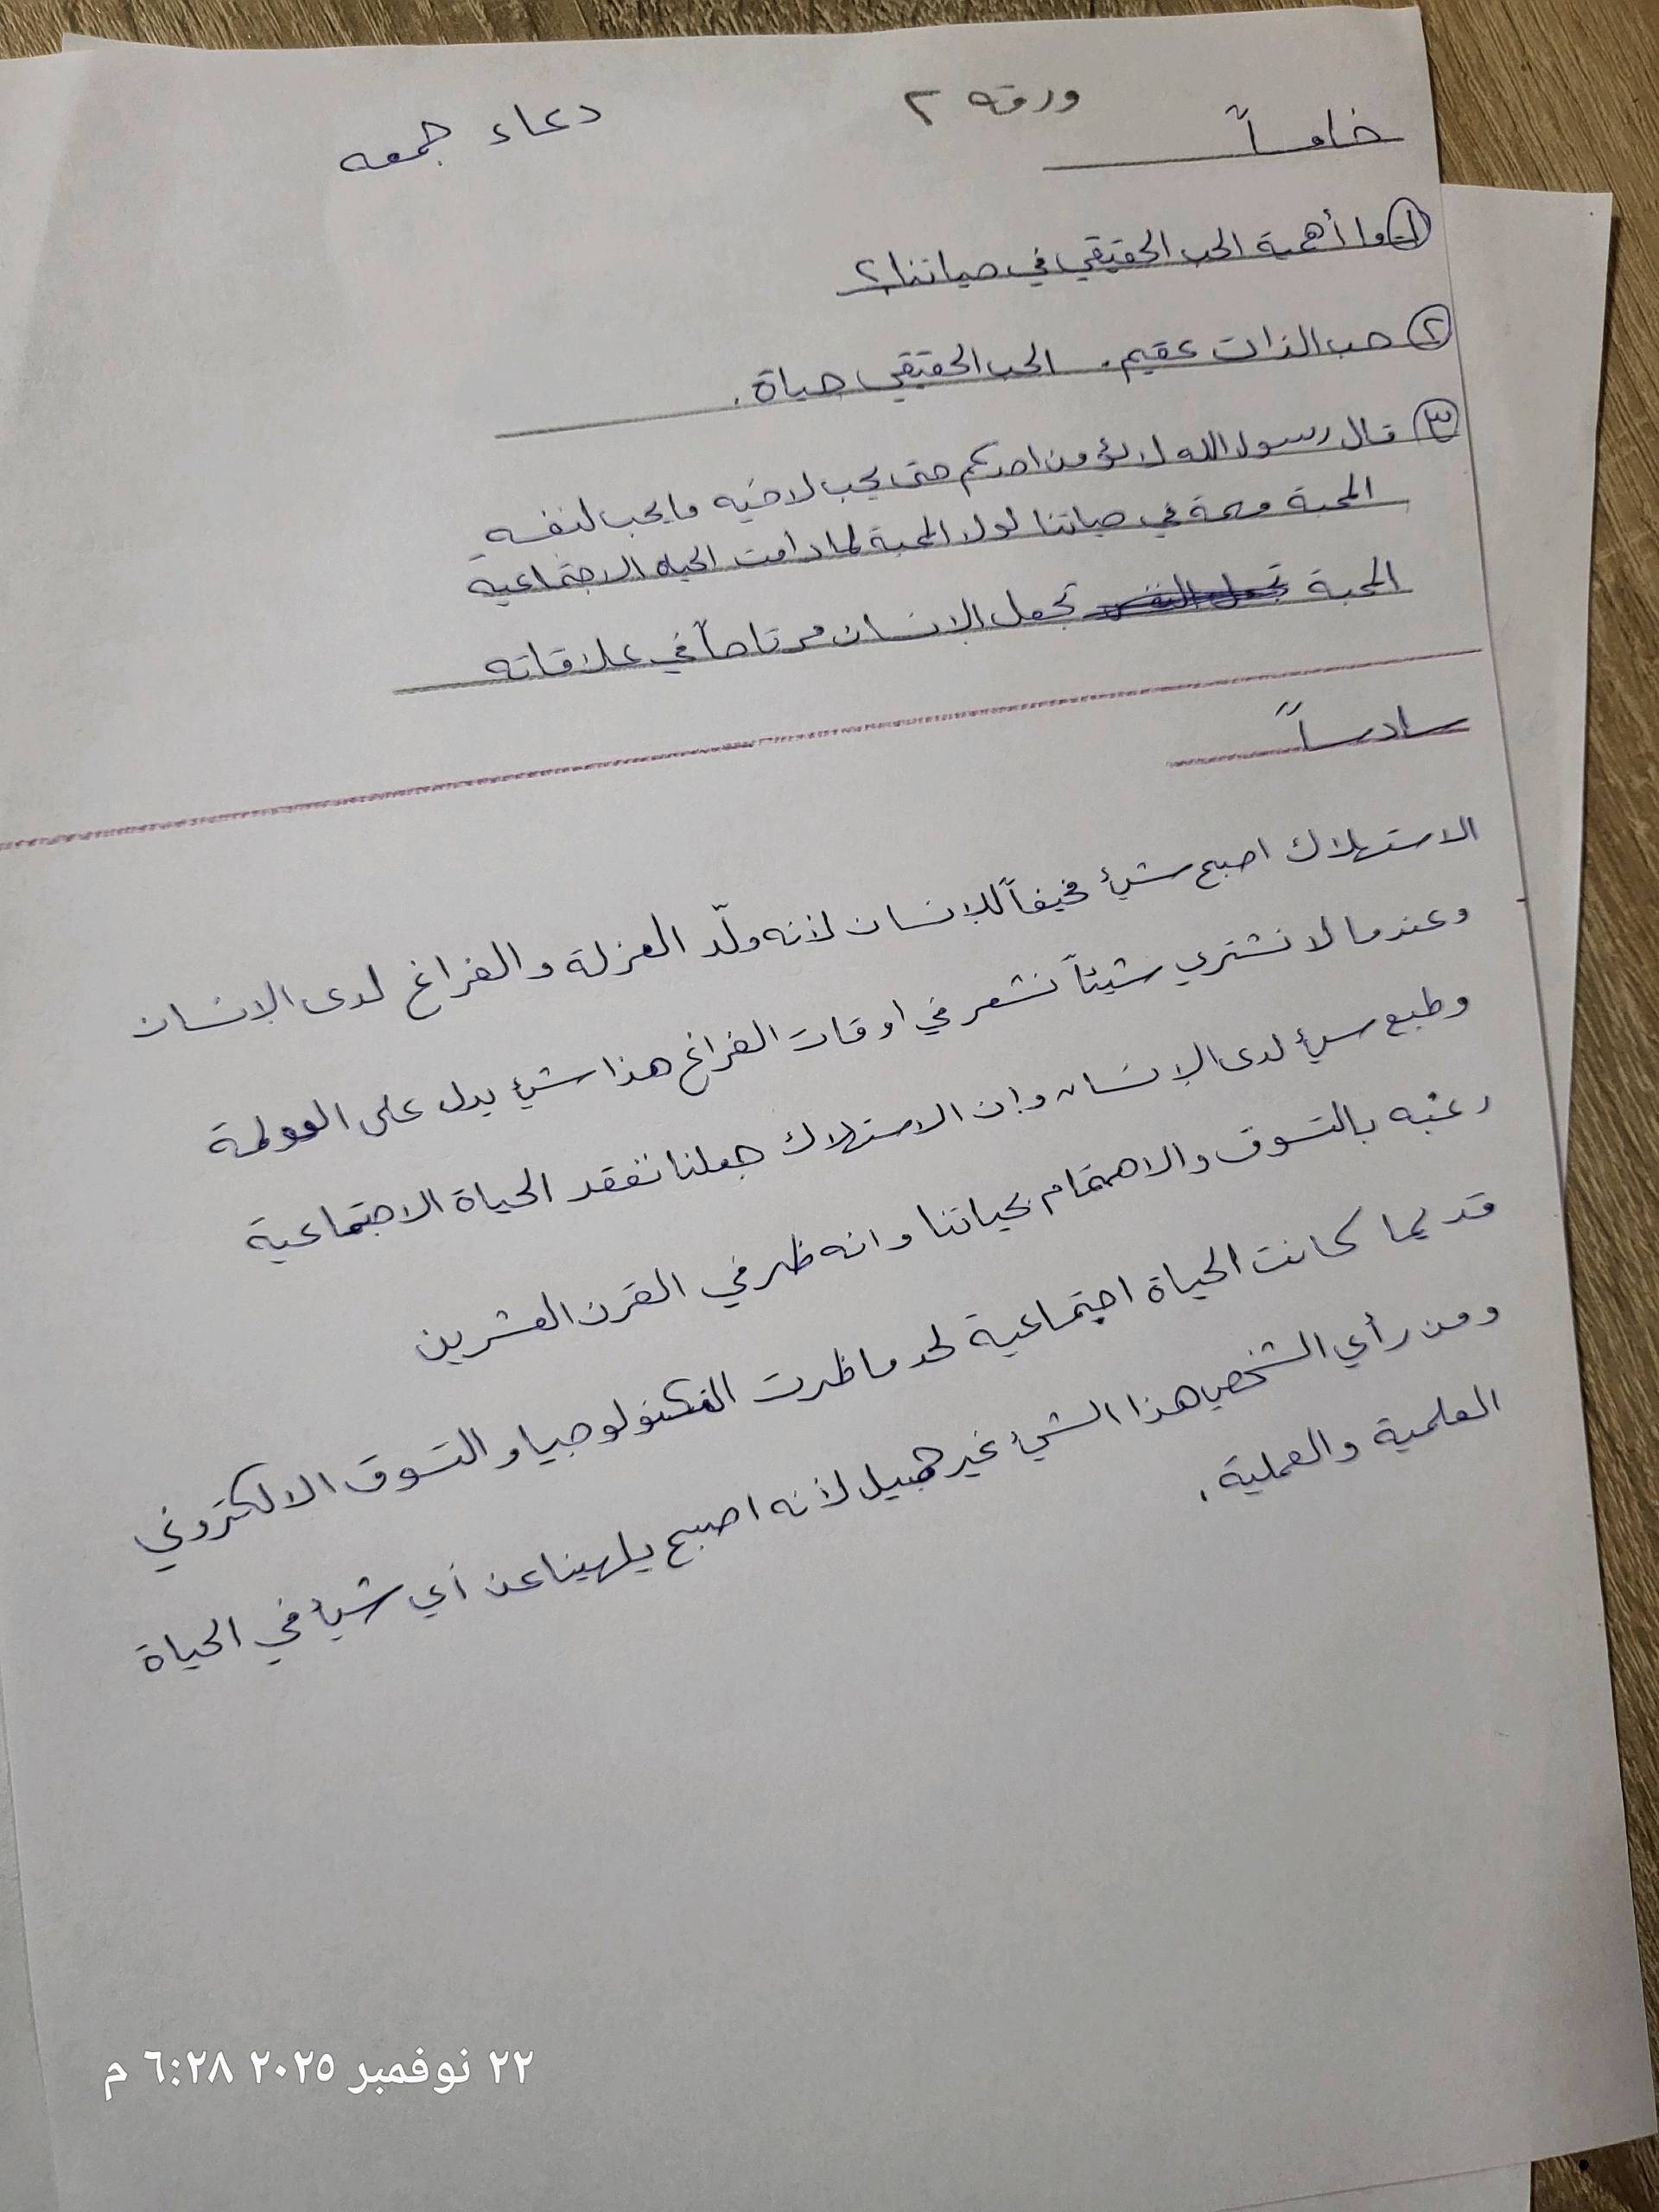 ورقه ٢
دعاء جمعه
خامساً
١- ما أهمية الحب الحقيقي في حياتنا؟
٢ حب الذات عقيم. الحب الحقيقي حياة.
٣ قال رسول الله لا يؤمن احدكم حتى يحب لاخيه ما يحب لنفسه
المحبة مهمة في حياتنا لولا المحبة لما دامت الحياه الاجتماعية
المحبة تجعل الانسان مرتاحاً في علاقاته
سادساً
الاستهلاك اصبح شيئ مخيفاً للانسان لأنه ولّد العزلة والفراغ لدى الانسان
وعندما لا نشتري شيئاً نشعر في اوقات الفراغ هذا شيئ يدل على العولمة
وطبع سيئ لدى الانسان وان الاستهلاك جعلنا نفقد الحياة الاجتماعية
رغبه بالتسوق والاهتمام بحياتنا وانه ظهر في القرن العشرين
قديما كانت الحياة اجتماعية لحد ما ظهرت التكنولوجيا والتسوق الالكتروني
ومن رأي الشخصي هذا الشيئ غير جميل لأنه اصبح يلهينا عن أي شيئ في الحياة
العلمية والعملية.
٢٢ نوفمبر ٢٠٢٥ ٦:٢٨ م